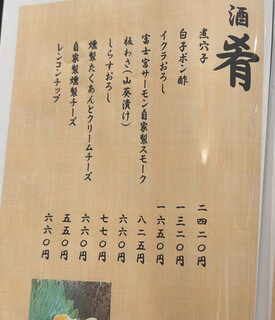 酒肴
煮穴子 二四二〇円
白子ポン酢 一三二〇円
イクラおろし 一六五〇円
富士宮サーモン自家製スモーク 八二五円
板わさ(山葵漬け) 六六〇円
しらすおろし 七七〇円
燻製たくあんとクリームチーズ 六六〇円
自家製燻製チーズ 五五〇円
レンコンチップ 六六〇円